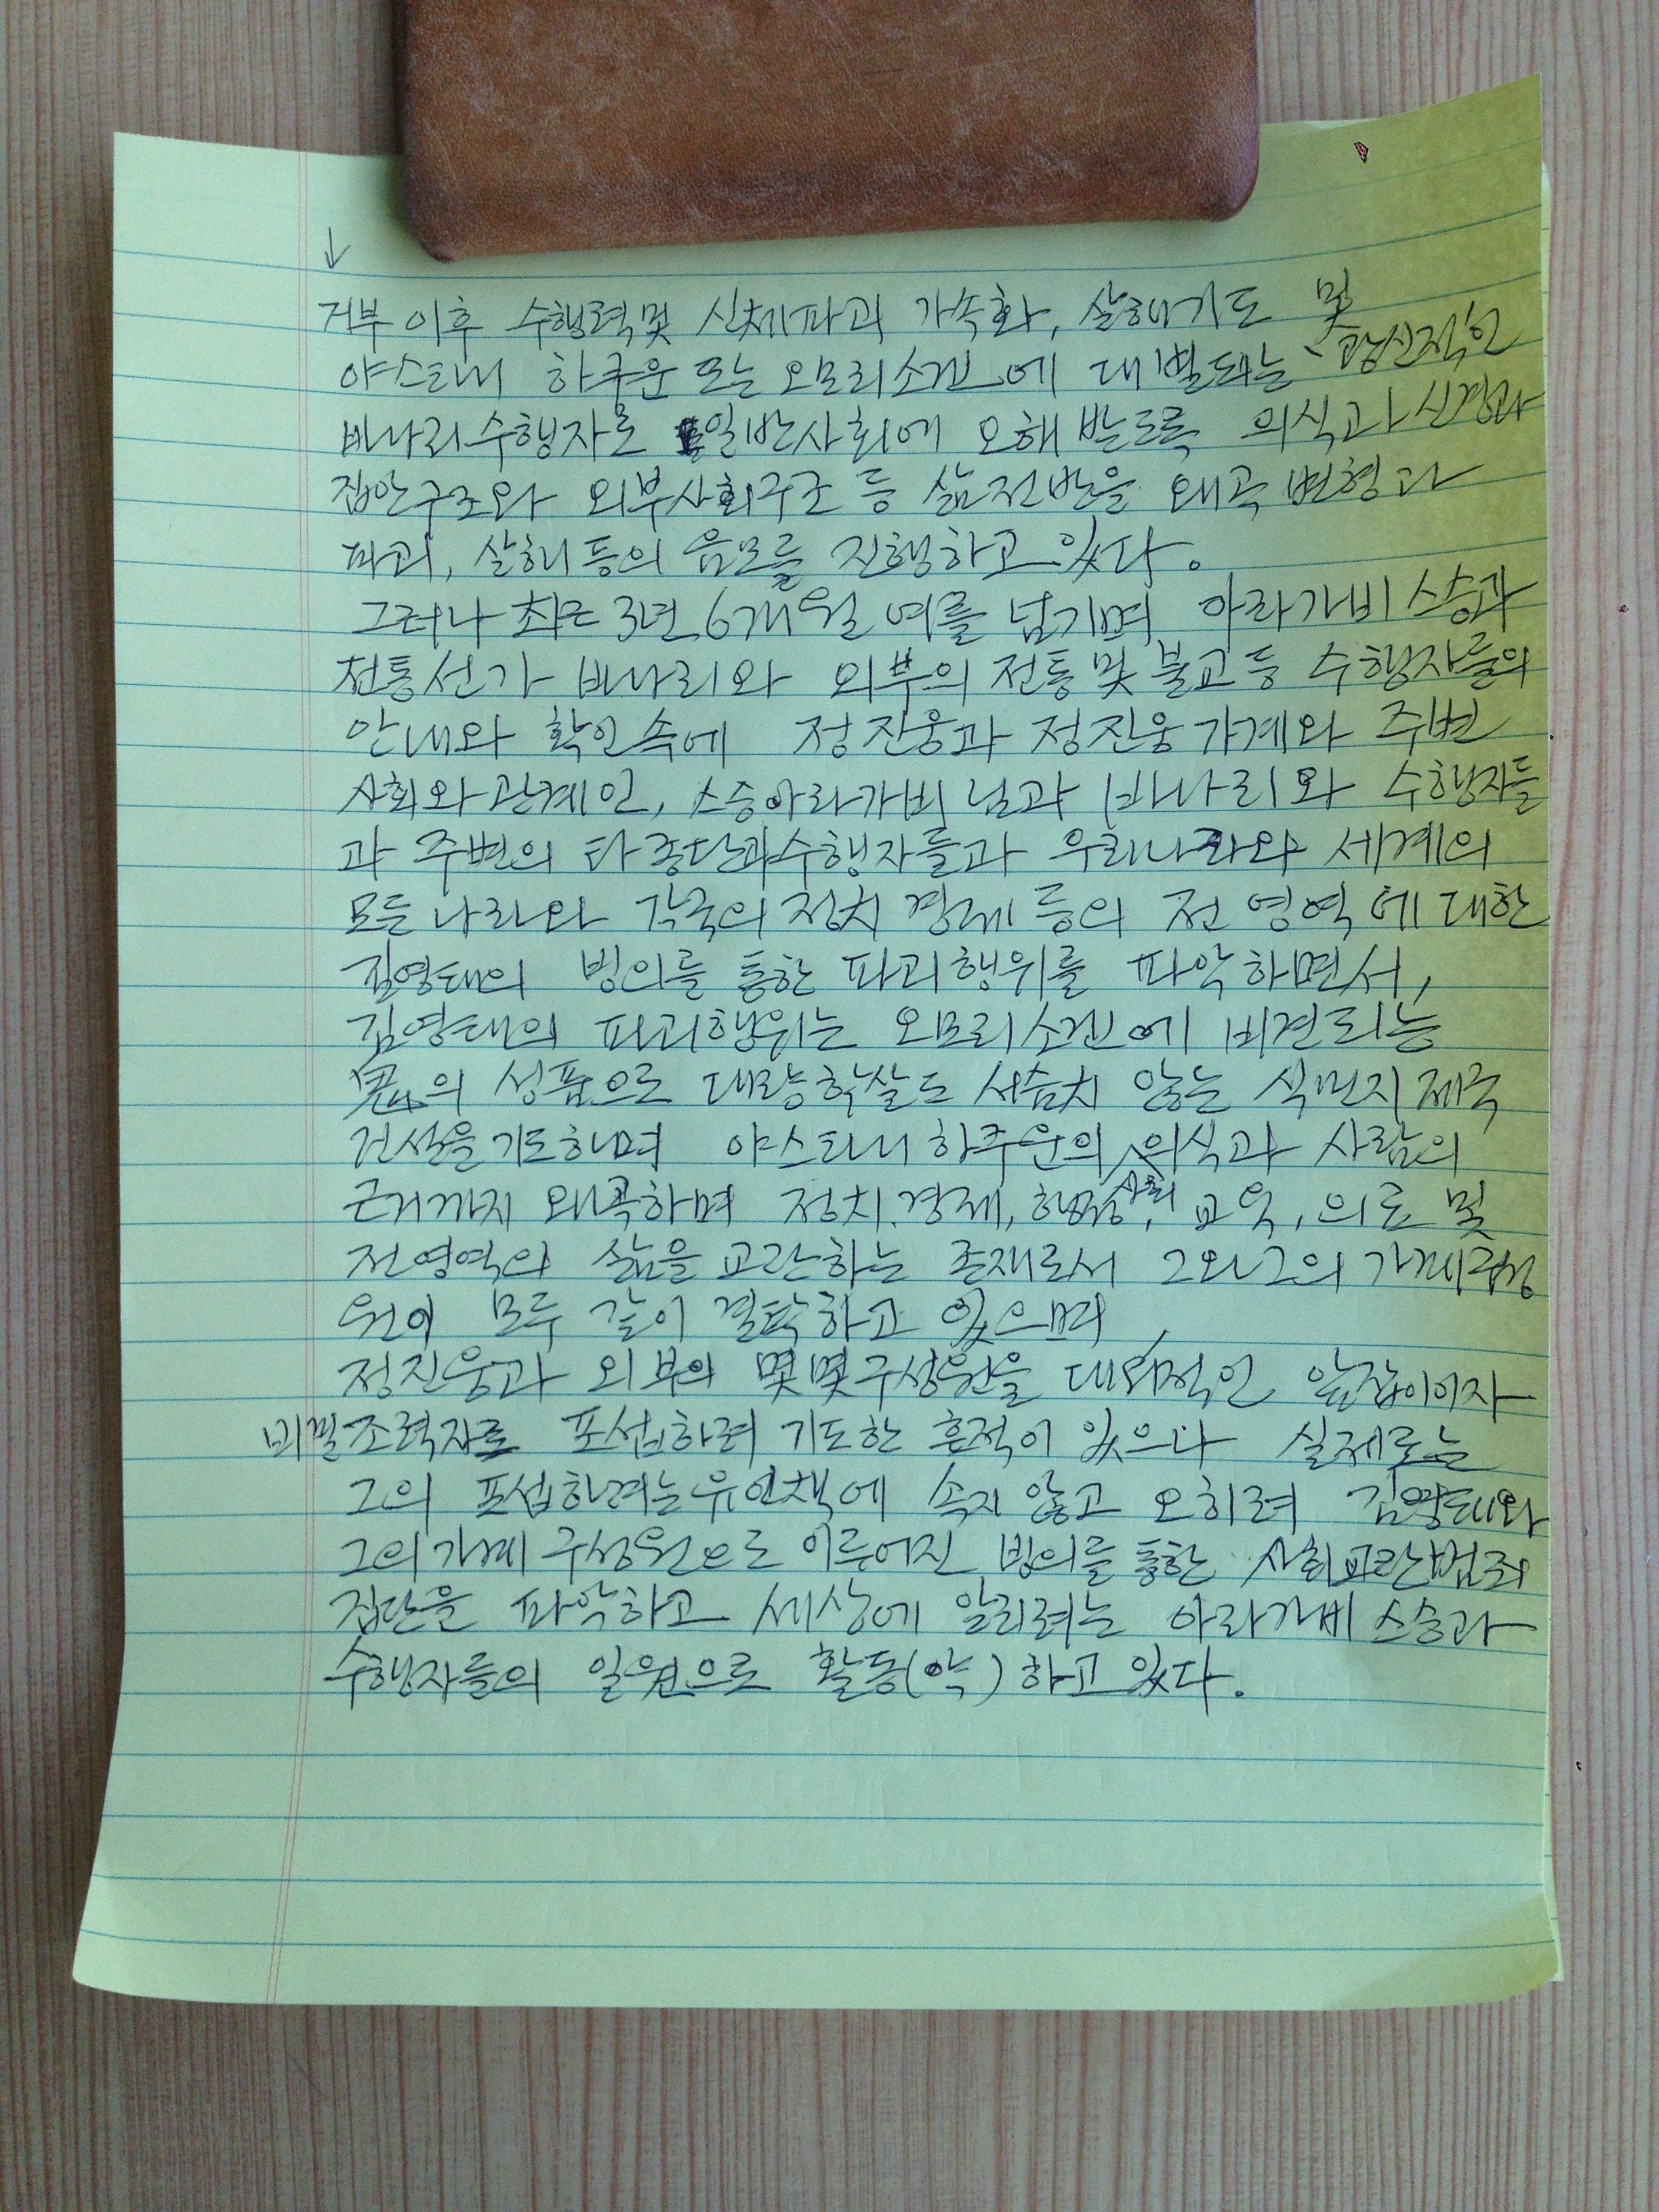 ↓
거부 이후 수행력및 신체파괴 가속화, 살해기도 및
야스타니 하쿠운 또는 오모리소겐에 대별되는 광신적인
바나리수행자로 일반사회에 오해 받도록 의식과 신경과
집안구조와 외부사회구조 등 삶전반을 왜곡 변형과
파괴, 살해 등의 음모를 진행하고 있다.
그러나 최근 3년 6개월 여를 넘기며 아라가비 스승과
전통선가 바나리와 외부의 전통 및 불교 등 수행자들의
안내와 확인속에 정진웅과 정진웅 가계와 주변
사회와 관계인, 스승아라가비 님과 바나리와 수행자들
과 주변의 타종단과수행자들과 우리나라와 세계의
모든 나라와 각국의 정치 경제 등의 전 영역에 대한
김영태의 빙의를 통한 파괴행위를 파악하면서,
김영태의 파괴행위는 오모리소겐에 비견되는
의 성품으로 대량학살도 서슴치 않는 식민지 제국
건설을 기도하며 야스타니하쿠운의 의식과 사람의
근거까지 왜곡하며 정치.경제, 행정, 사회 교육, 의료 및
전영역의 삶을 교란하는 존재로서 그와 그의 가계구성
원이 모두 같이 결탁하고 있으며,
정진웅과 외부의 몇몇구성원을 대외적인 앞잡이이자
비밀조력자로 포섭하려 기도한 흔적이 있으나 실제로는
그의 포섭하려는 유인책에 속지 않고 오히려 김영태와
그의가계 구성원으로 이루어진 빙의를 통한 사회교란범죄
집단을 파악하고 세상에 알리려는 아라가비 스승과
수행자들의 일원으로 활동(약)하고 있다.